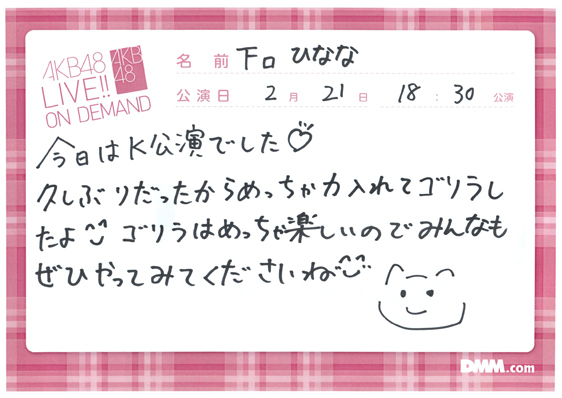 AKB48
LIVE!!
ON DEMAND
AKB
48
名前 下口 ひなな
公演日 2月 21日 18:30 公演
今日はK公演でした♡
久しぶりだったからめっちゃ力入れてゴリラし
たよ^^ ゴリラはめっちゃ楽しいのでみんなも
ぜひやってみてくださいね^^
DMM.com